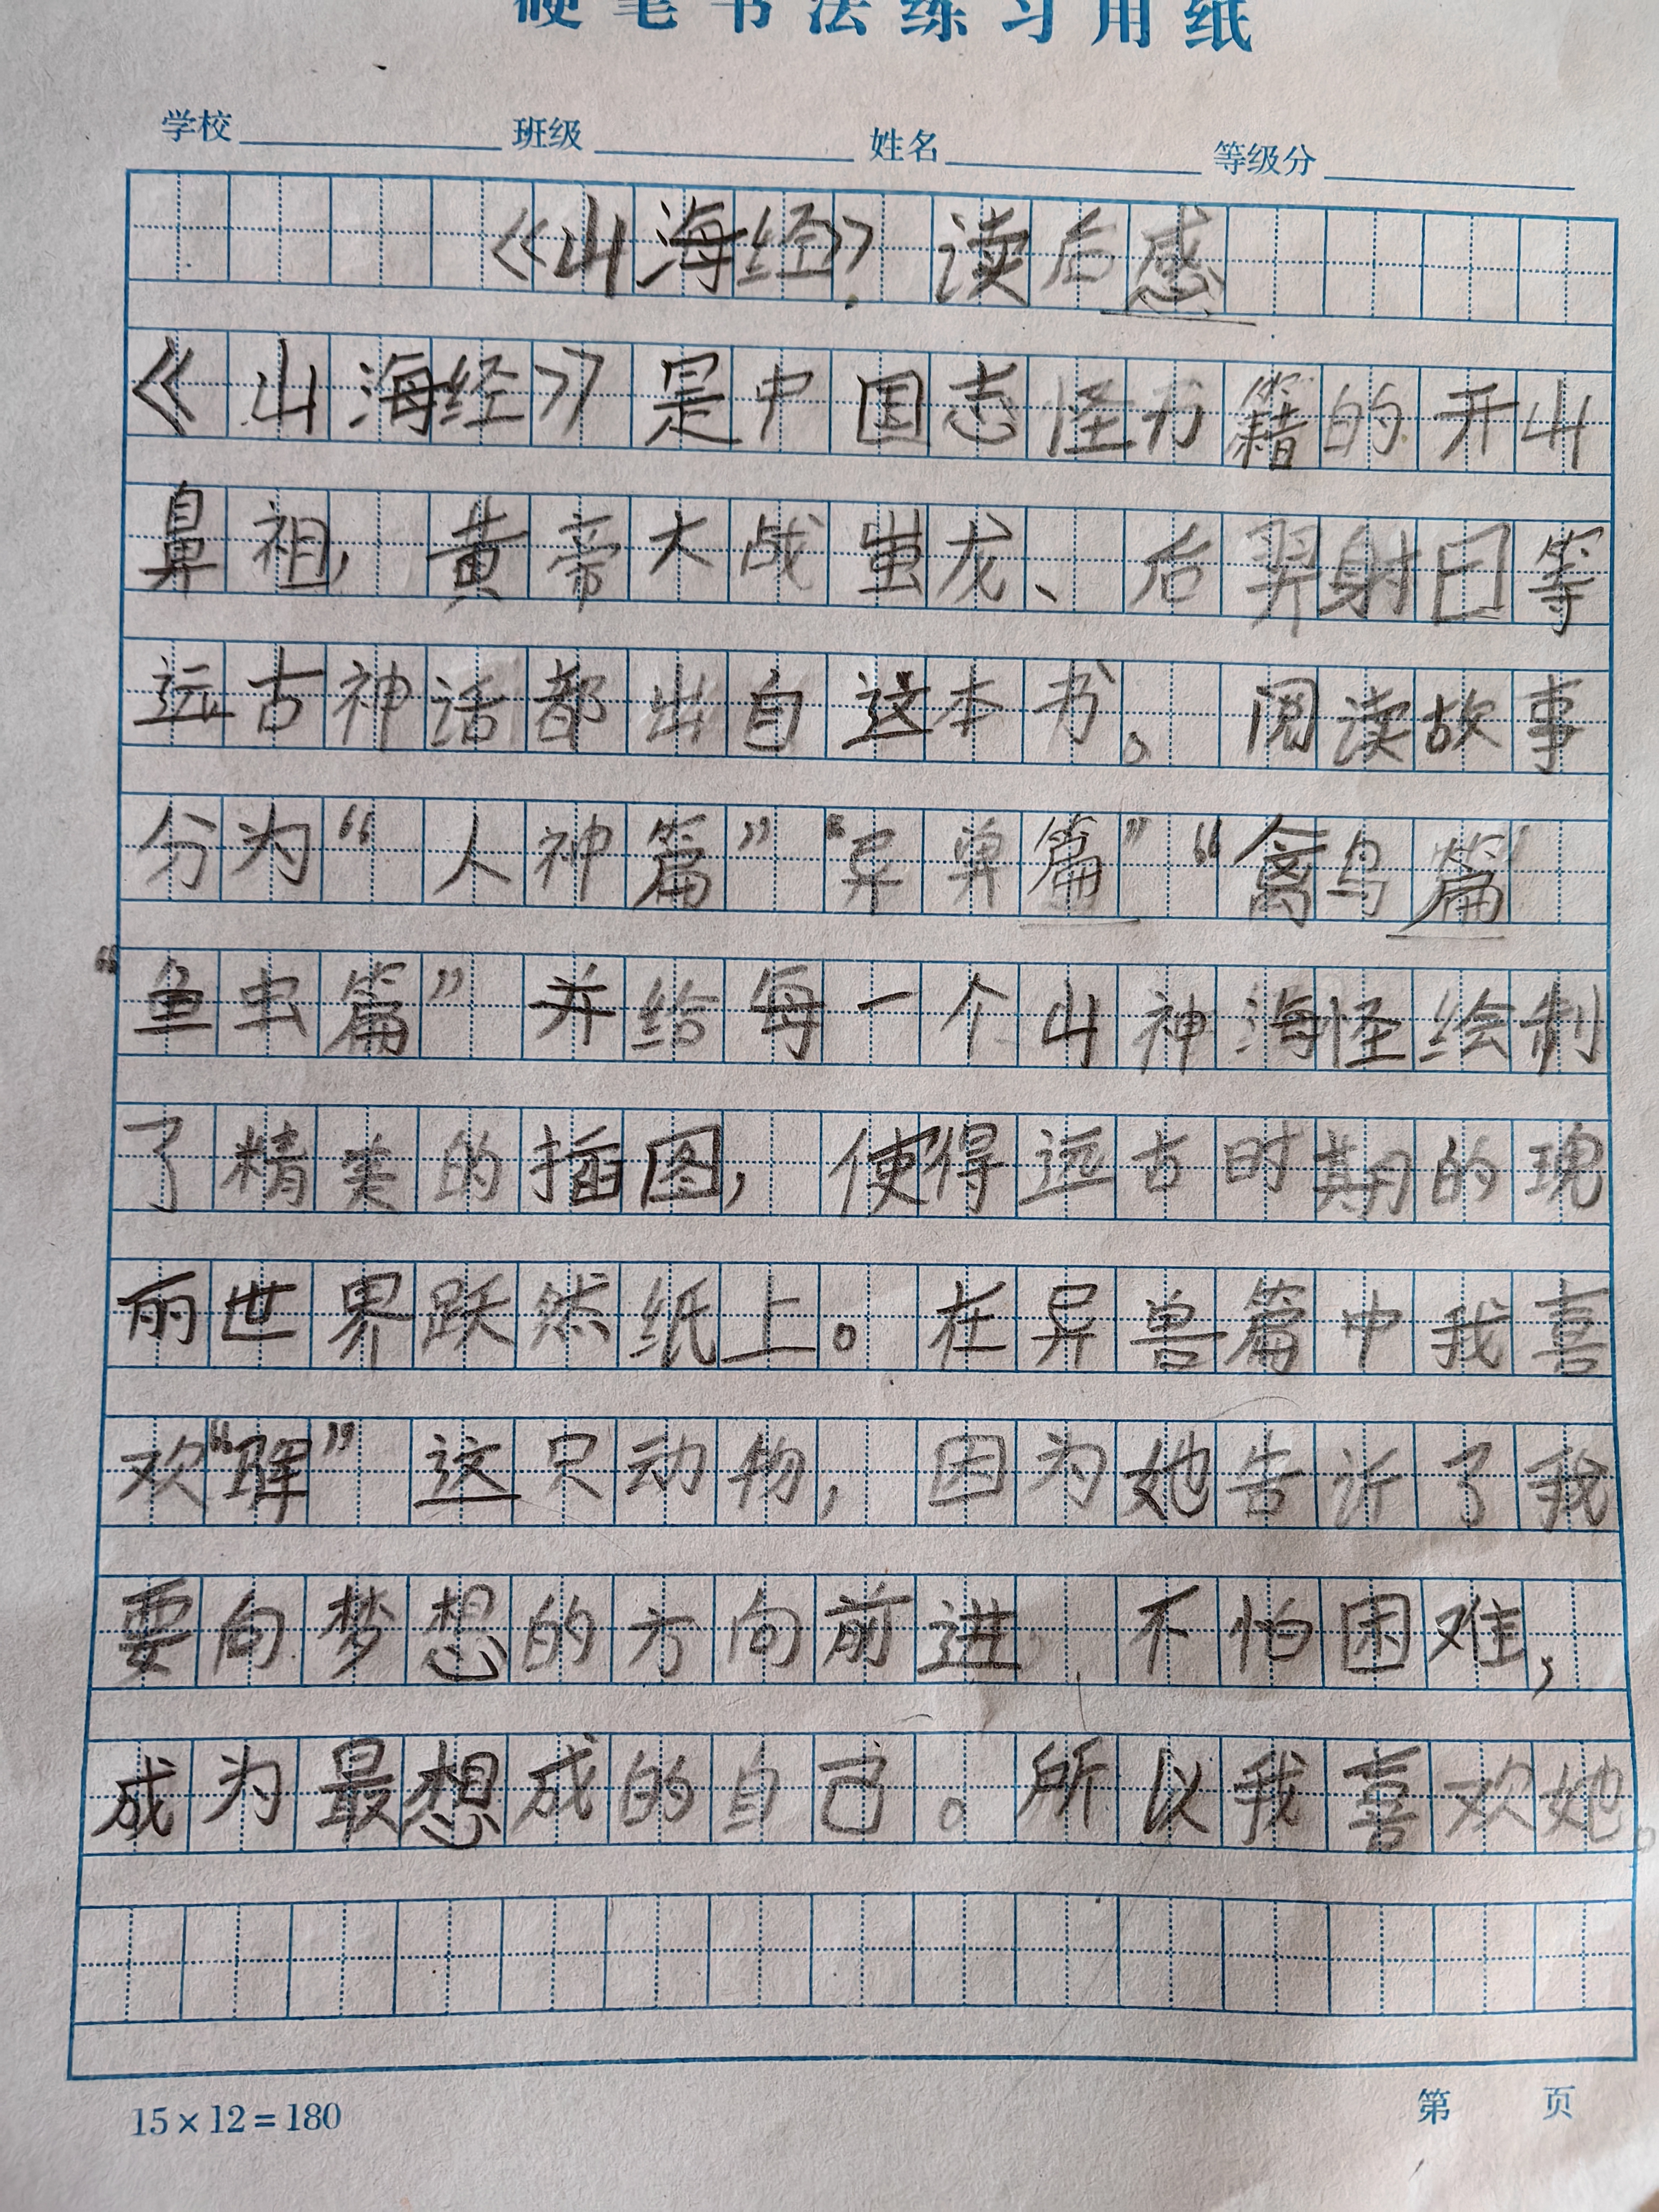 硬笔书法练习用纸
学校 班级 姓名 等级分
《山海经》读后感
《山海经》是中国志怪书籍的开山
鼻祖，黄帝大战蚩龙、后羿射日等
远古神话都出自这本书。阅读故事
分为“人神篇”“异兽篇”“禽鸟篇
“鱼虫篇”并给每一个山神海怪绘制
了精美的插图，使得远古时期的瑰
丽世界跃然纸上。在异兽篇中我喜
欢“珲”这只动物，因为她告诉了我
要向梦想的方向前进，不怕困难，
成为最想成的自己。所以我喜欢她。
15×12=180
第 页